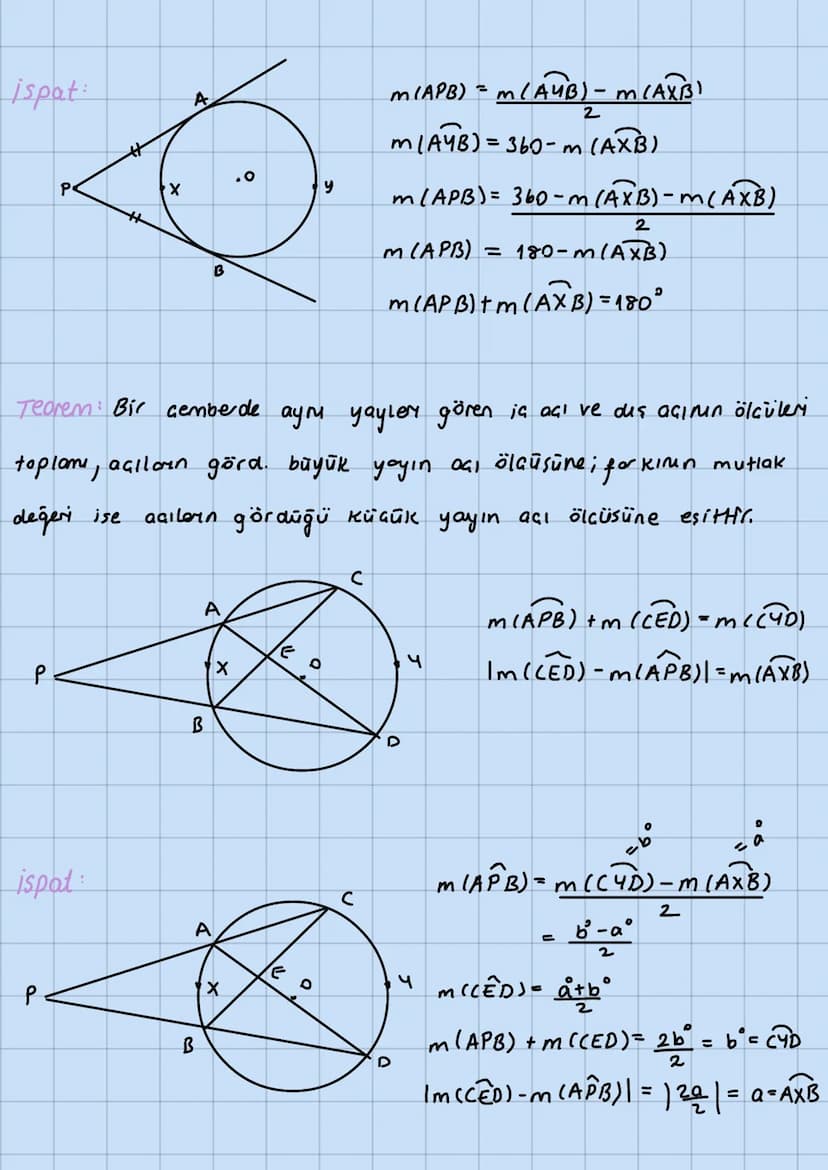 ispat:
A
P
X
.O
y
B
m(APB) = m(AYB) - m(AXB) / 2
m(AYB) = 360 - m(AXB)
m(APB) = 360 - m(AXB) - m(AXB) / 2
m(APB) = 180 - m(AXB)
m(APB) + m(AXB) = 180°
Teorem: Bir çemberde aynı yayları gören iç açı ve dış açının ölçüleri
toplamı, açıların görd. büyük yayın açı ölçüsüne; farkının mutlak
değeri ise açıların gördüğü küçük yayın açı ölçüsüne eşittir.
C
A
P
X
E
O
Y
B
D
m(APB) + m(CED) = m(CYD)
|m(CED) - m(APB)| = m(AXB)
ispat:
C
A
P
X
E
O
Y
B
D
=b° =a°
m(APB) = m(CYD) - m(AXB) / 2
= b° - a° / 2
m(CED) = a° + b° / 2
m(APB) + m(CED) = 2b° / 2 = b° = CYD
|m(CED) - m(APB)| = |2a / 2| = a = AXB